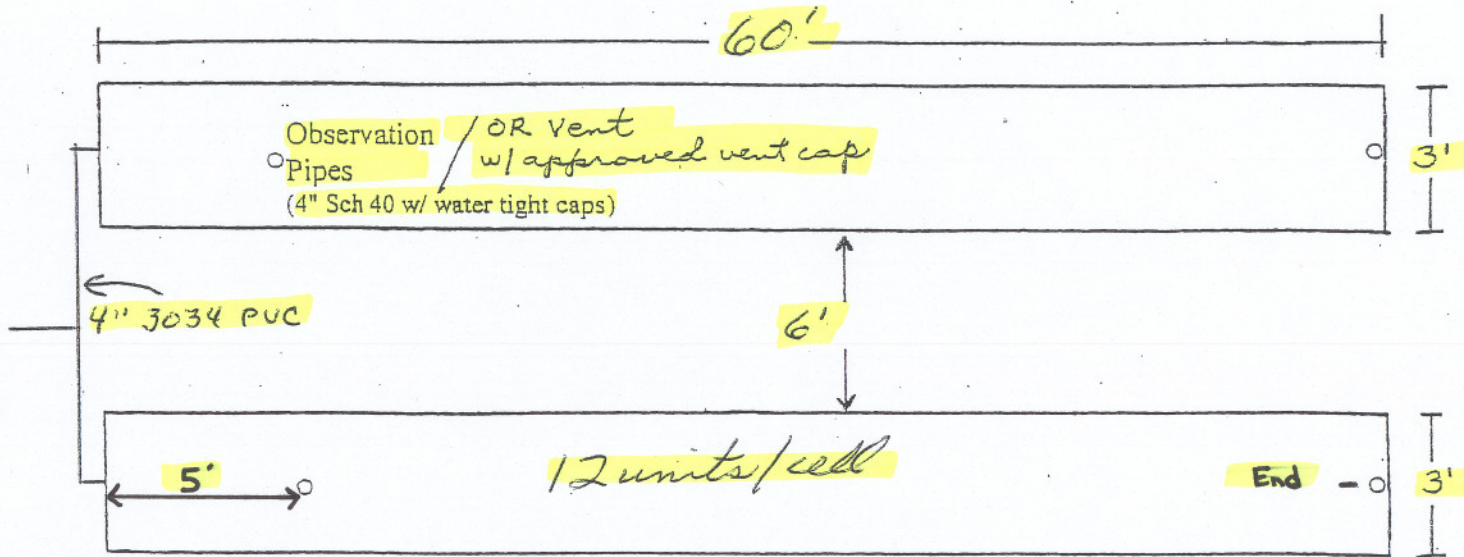 60'
Observation / OR Vent
Pipes w/ approved vent cap
(4" Sch 40 w/ water tight caps)
3'
4" 3034 PVC
6'
12 units/cell
5'
End
3'